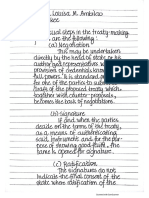 Louisa M. Ambilao
usual steps in the treaty-making
are the following:
(a) Negotiation
This may be undertaken
directly by the head of state or his
authorized representatives with
known as
full power. It is standard
for one of the parties to submit a
draft of the proposed treaty which
together with counter-proposals,
becomes the basis of negotiation.
(b) Signature
If and when the parties
decide on the terms of the treaty,
as a means of authenticating
said instrument, and for the pur-
pose of symbolizing good faith, the same
is opened for signature.
(c) Ratification
The signatures do not
indicate the final consent of the
state when ratification of the